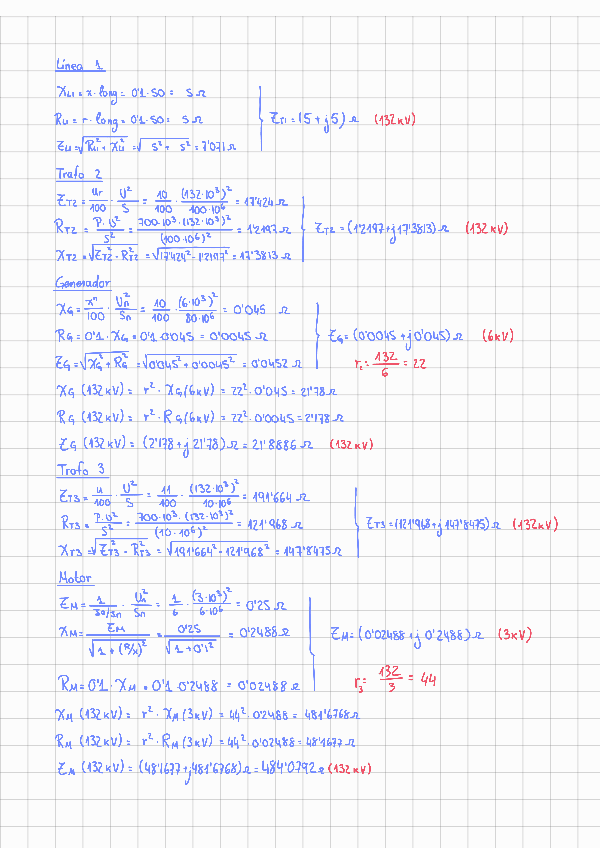 Línea 1
X_L1 = x · long = 0'1 · 50 = 5 Ω
R_L1 = r · long = 0'1 · 50 = 5 Ω
Z_L1 = (5 + j5) Ω (132 kV)
Z_L1 = √(R_L1² + X_L1²) = √(5² + 5²) = 7'071 Ω
Trafo 2
Z_T2 = Ur/100 · U²/S = 10/100 · (132·10³)²/100·10⁶ = 17'424 Ω
R_T2 = P·U²/S² = 700·10³·(132·10³)²/(100·10⁶)² = 1'2197 Ω
Z_T2 = (1'2197 + j 17'3813) Ω (132 kV)
X_T2 = √(Z_T2² - R_T2²) = √(17'424² - 1'2197²) = 17'3813 Ω
Generador
X_G = x"/100 · Un²/Sn = 10/100 · (6·10³)²/80·10⁶ = 0'045 Ω
R_G = 0'1 · X_G = 0'1 · 0'045 = 0'0045 Ω
Z_G = (0'0045 + j 0'045) Ω (6kV)
Z_G = √(X_G² + R_G²) = √(0'045² + 0'0045²) = 0'0452 Ω
r₂ = 132/6 = 22
X_G (132 kV) = r² · X_G (6kV) = 22² · 0'045 = 21'78 Ω
R_G (132 kV) = r² · R_G (6kV) = 22² · 0'0045 = 2'178 Ω
Z_G (132 kV) = (2'178 + j 21'78) Ω = 21'8886 Ω (132 kV)
Trafo 3
Z_T3 = u/100 · U²/S = 11/100 · (132·10³)²/10·10⁶ = 191'664 Ω
R_T3 = P·U²/S² = 700·10³·(132·10³)²/(10·10⁶)² = 121'968 Ω
Z_T3 = (121'968 + j 147'8475) Ω (132kV)
X_T3 = √(Z_T3² - R_T3²) = √(191'664² - 121'968²) = 147'8475 Ω
Motor
Z_M = 1/Ia/In · Un²/Sn = 1/6 · (3·10³)²/6·10⁶ = 0'25 Ω
X_M = Z_M/√(1 + (R/x)²) = 0'25/√(1 + 0'1²) = 0'2488 Ω
Z_M = (0'02488 + j 0'2488) Ω (3kV)
R_M = 0'1 · X_M = 0'1 · 0'2488 = 0'02488 Ω
r₃ = 132/3 = 44
X_M (132 kV) = r² · X_M (3kV) = 44² · 0'2488 = 481'6768 Ω
R_M (132 kV) = r² · R_M (3kV) = 44² · 0'02488 = 48'1677 Ω
Z_M (132 kV) = (48'1677 + j 481'6768) Ω = 484'0792 Ω (132 kV)